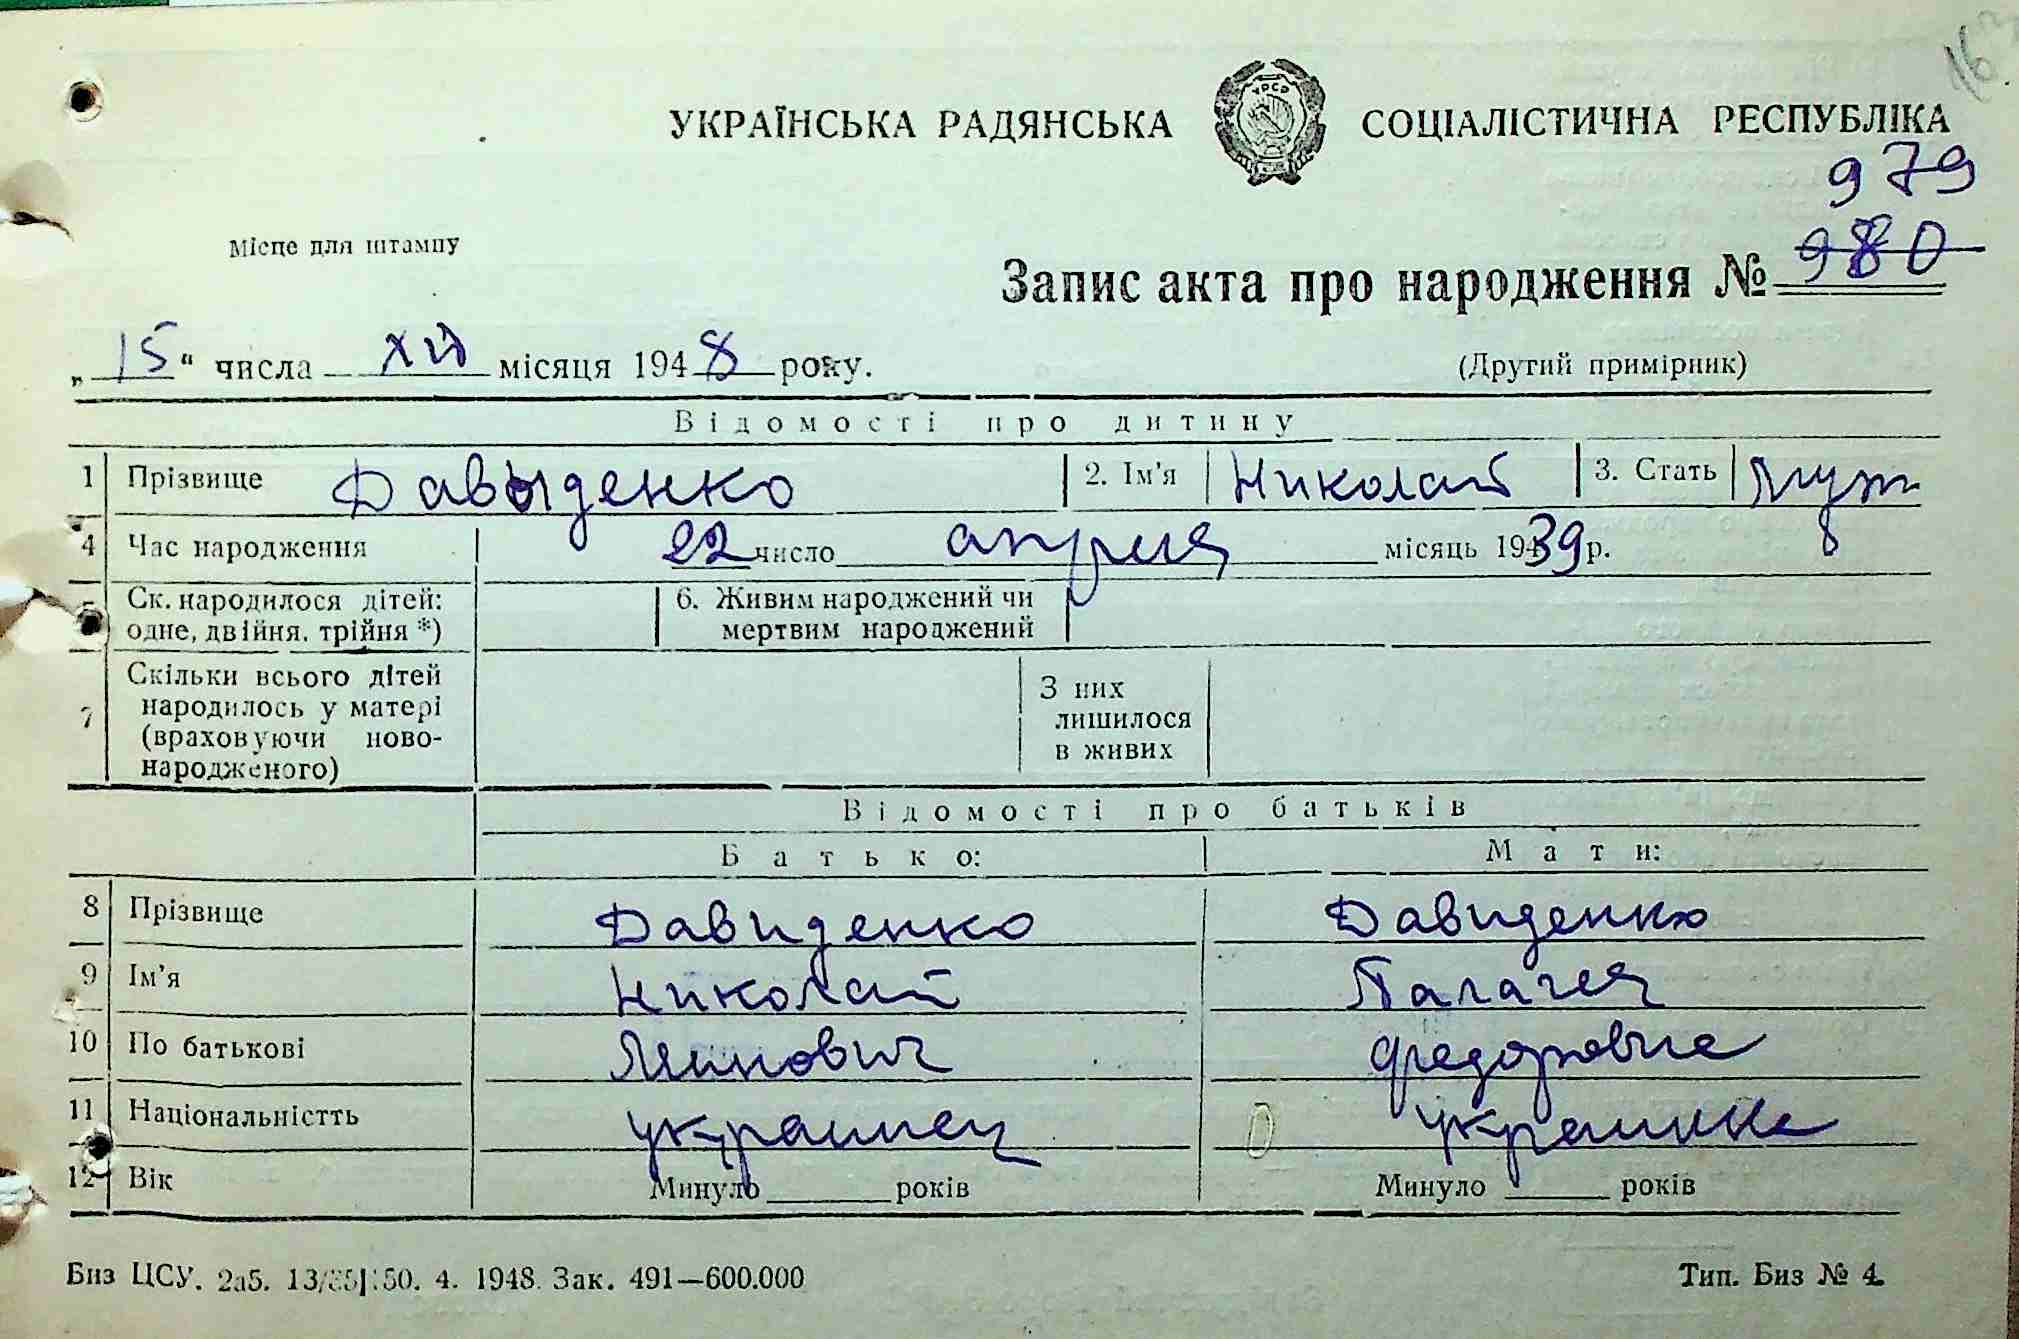 УКРАЇНСЬКА РАДЯНСЬКА СОЦІАЛІСТИЧНА РЕСПУБЛІКА
УРСР
979
Місце для штампу
Запис акта про народження № 980
„15“ числа XII місяця 1948 року.
(Другий примірник)
Відомості про дитину
1 Прізвище Давыденко 2. Ім'я Николай 3. Стать муж
4 Час народження 22 число апреля місяць 1939 р.
5 Ск. народилося дітей: одне, двійня, трійня *) 6. Живим народжений чи мертвим народжений
7 Скільки всього дітей народилось у матері (враховуючи новонародженого) З них лишилося в живих
Відомості про батьків
Батько: Мати:
8 Прізвище Давиденко Давиденко
9 Ім'я Николай Палагея
10 По батькові Федоровне
11 Національністть украинец украинка
12 Вік Минуло ____ років Минуло ____ років
Биз ЦСУ. 2а5. 4. 1948. Зак. 491—600.000 Тип. Биз № 4.